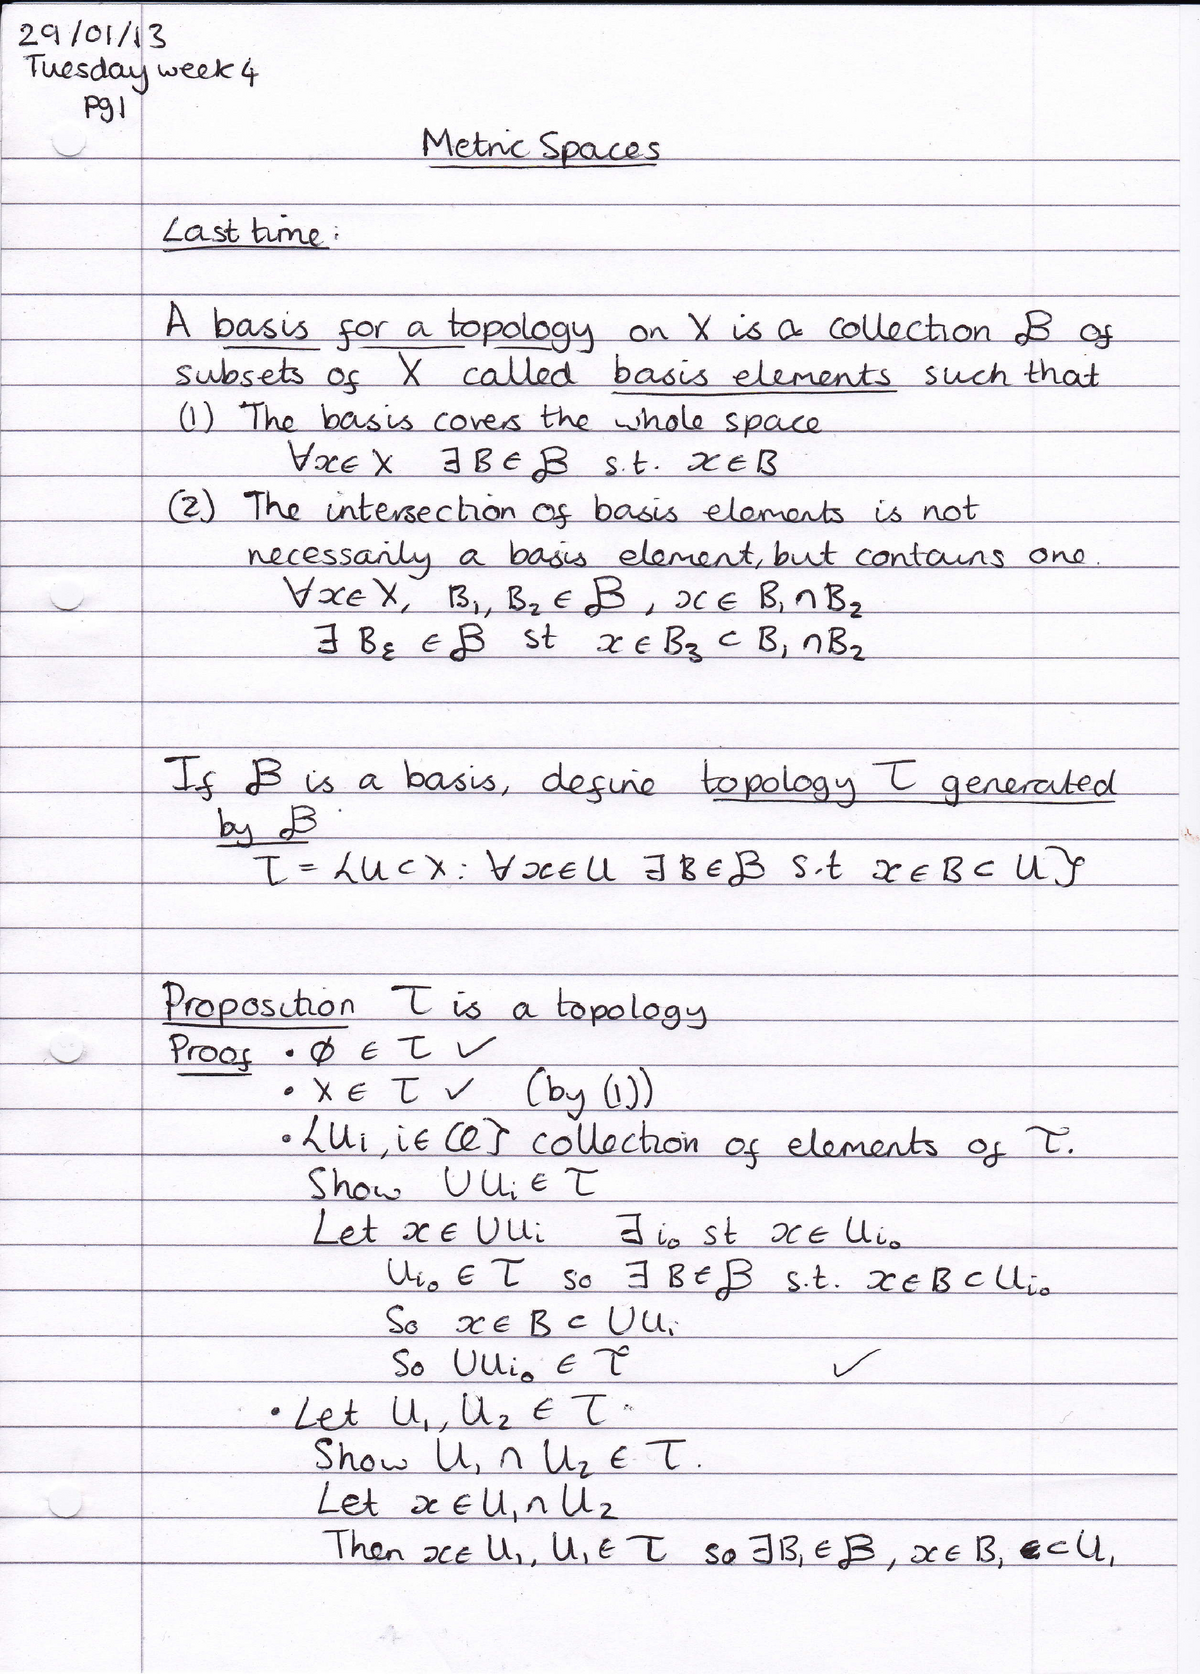 29/01/13
Tuesday week 4
pg1
Metric Spaces
Last time:
A basis for a topology on X is a collection ℬ of
subsets of X called basis elements such that
(1) The basis covers the whole space
∀x∈X ∃B∈ℬ s.t. x∈B
(2) The intersection of basis elements is not
necessarily a basis element, but contains one.
∀x∈X, B₁, B₂ ∈ ℬ, x ∈ B₁∩B₂
∃ B₃ ∈ ℬ st x ∈ B₃ ⊂ B₁∩B₂
If ℬ is a basis, define topology τ generated
by ℬ
τ = {U⊂X: ∀x∈U ∃B∈ℬ s.t x∈B⊂U}
Proposition τ is a topology
Proof • ∅ ∈ τ ✓
• X ∈ τ ✓ (by (1))
• {Uᵢ, i∈ } collection of elements of τ.
Show ∪Uᵢ ∈ τ
Let x∈∪Uᵢ ∃i₀ st x∈Uᵢ₀
Uᵢ₀ ∈ τ so ∃B∈ℬ s.t. x∈B⊂Uᵢ₀
So x∈B⊂∪Uᵢ
So ∪Uᵢ₀ ∈ τ ✓
• Let U₁, U₂ ∈ τ
Show U₁ ∩ U₂ ∈ τ.
Let x∈U₁∩U₂
Then x∈U₁, U₁∈τ so ∃B₁∈ℬ, x∈B₁ ⊂U₁